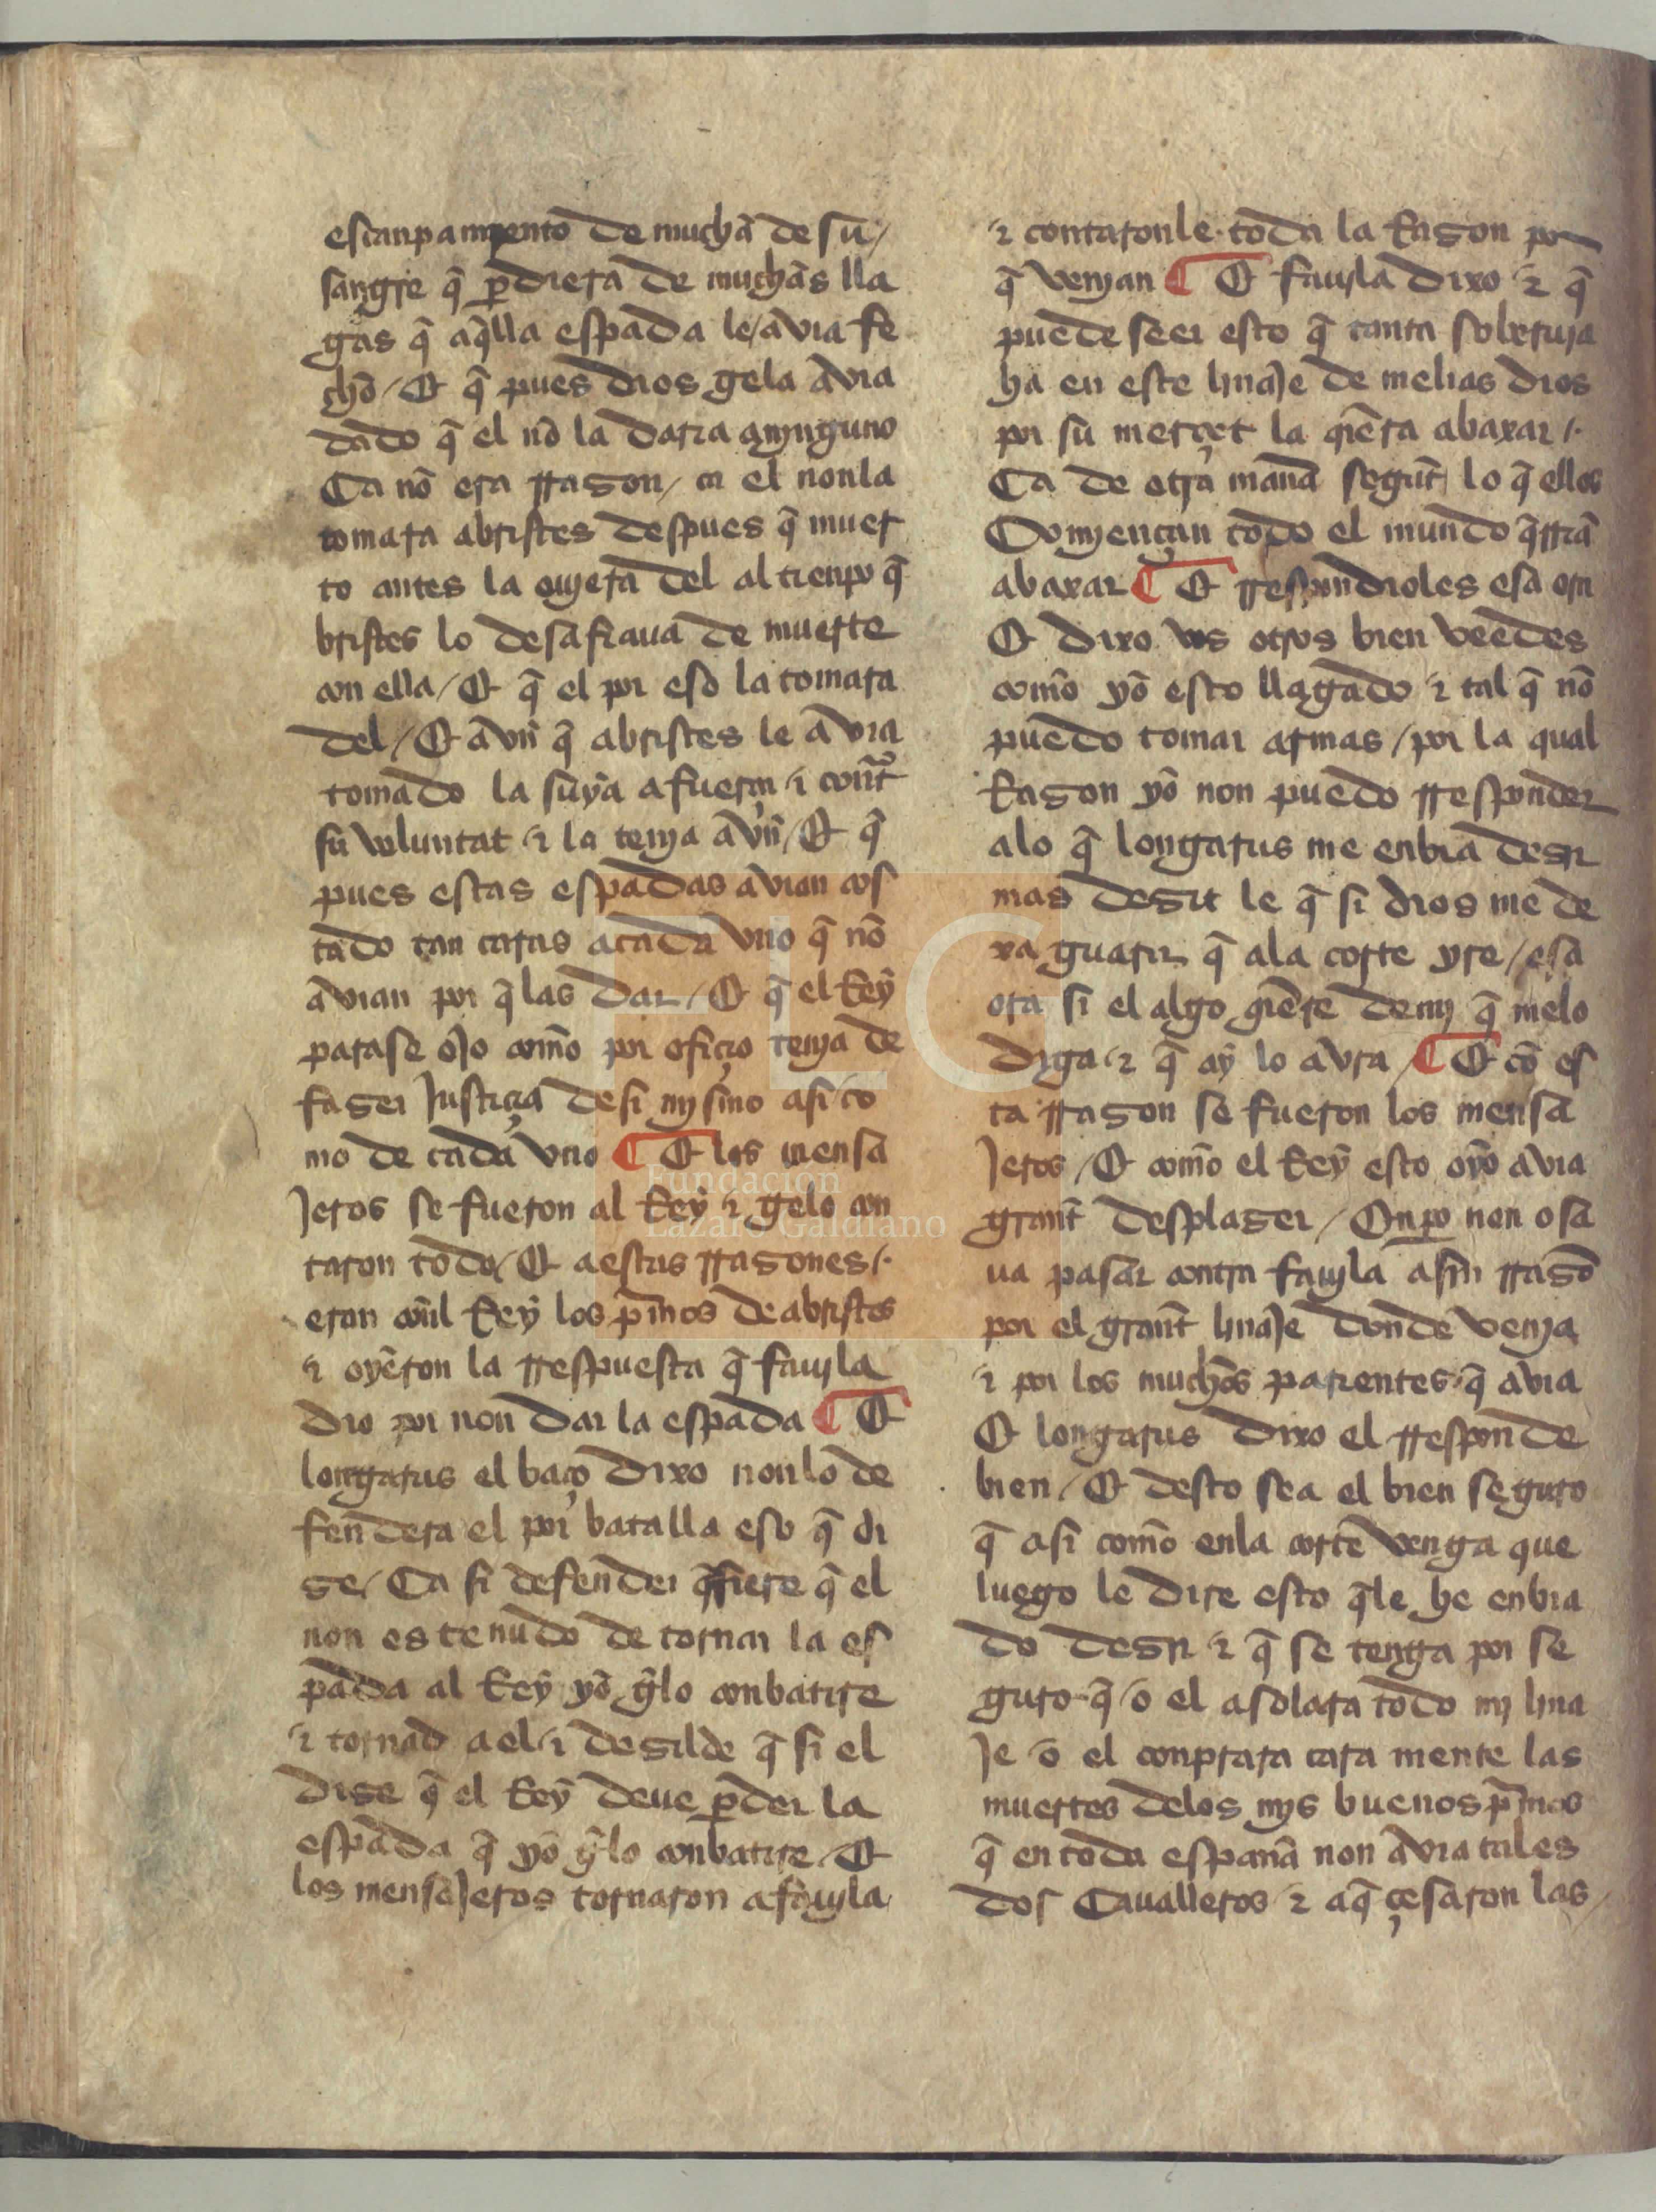 escanpamyento de mucha de su /
sangre q̄ ꝑdiera de muchas lla
gas q̄ aq̄lla espada le / avia fe
cho / Et q̄ pues dios gela avia
dado q̄ el nō la daria a nynguno
Ca nō era rrason / ca el non la
tomara abristes despues q̄ muer
to antes la oviera del al tienpo q̄
bristes lo desafiaua de muerte
con ella / Et q̄ el por eso la tomara
del / Et avn̄ q̄ abristes le avia
tomado la suya a fuerça ⁊ cont̃
su voluntat ⁊ la tenya avn̄ / Et q̄
pues estas espadas avian cos
tado tan caras a cada vno q̄ nō
avian por q̄ las dar / Et q̄ el Rey
parase ojo com̄o por ofiçio tenya de
faser justiçia de si mysmo asi co
mo de cada vno ¶ Et los mensa
jeros se fueron al Rey ⁊ gelo con
taron todo / Et a estas rrasones /.
eran con̄l Rey los pⁱmos de abristes
⁊ oyeron la rrespuesta q̄ fauyla
dio por non dar la espada ¶ Et
longarus el baço dixo non lo de
fendera el por batalla eso q̄ di
se / Ca si defender q̄siere q̄ el
non es tenudo de tornar la es
pada al Rey yo ḡlo conbatire
⁊ tornad a el ⁊ desilde q̄ si el
dise q̄ el Rey deue ꝑder la
espada q̄ yo ḡ lo conbatire / Et
los mensajeros tornaron a fauyla
⁊ contaronle toda la Rason por
q̄ venyan ¶ Et fauyla dixo ⁊ q̄
puede seer esto q̄ tanta soberuja
ha en este linaje de melias dios
por su merçet la q̄era abaxar /.
Ca de otra man̄a segunt lo q̄ ellos
Comyençan todo el mundo q̄rriā
abaxar ¶ Et rrespondioles esa ora
Et dixo vos otros bien veedes
com̄o yo esto llagado ⁊ tal q̄ nō
puedo tomar armas / por la qual
Rason yo non puedo rresponder
a lo q̄ longarus me enbia desir
mas desit le q̄ si dios me de
xa guarir q̄ a la corte yre / esa
ora si el algo q̄ere de my q̄ melo
diga ⁊ q̄ ay lo avra / ¶ Et cō es
ta rrason se fueron los mensa
jeros / Et com̄o el Rey esto oyo avia
grant desplaser / Enꝑo non osa
ua pasar contra fauyla a sin rrasō
por el grant linaje donde venya
⁊ por los muchos parientes q̄ avia
Et longarus dixo el rresponde
bien / Et desto sea el bien seguro
q̄ asi com̄o en la corte venga que
luego le dire esto q̄ le he enbia
do desir ⁊ q̄ se tenga por se
guro q̄ o el asolara todo my lina
je o el conprara cara mente las
muertes delos mys buenos pⁱmos
q̄ en toda españa non avia tales
dos Caualleros ⁊ aq̄ çesaron las /
FLG
Fundación
Lázaro Galdiano